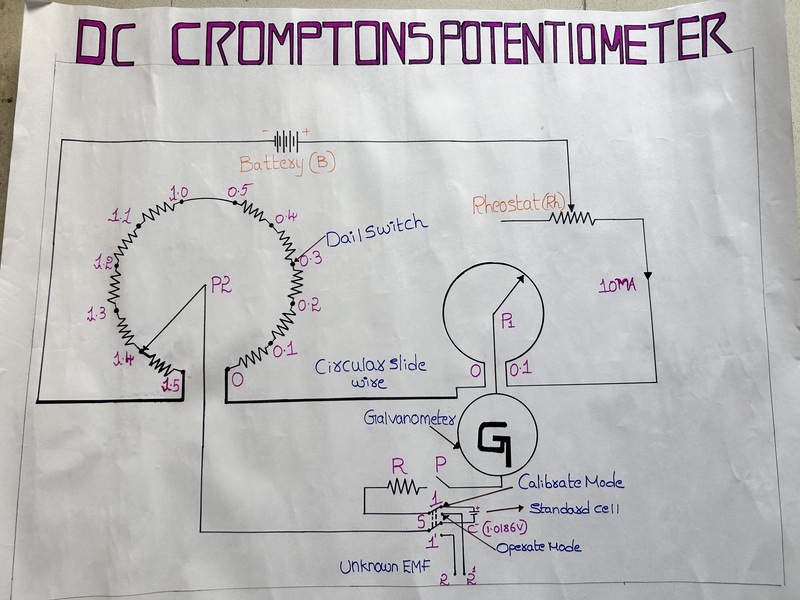 DC CROMPTONS POTENTIOMETER
- +
Battery (B)
1.0 0.5
1.1 0.4
Rheostat (Rh)
Dail Switch
1.2 0.3
P2
10MA
1.3 0.2
P1
1.4 0.1
1.5 0
Circular slide
wire
0 0.1
Galvanometer
G
R P
Calibrate Mode
1
+
Standard cell
S
C (1.0186V)
1'
Operate Mode
Unknown EMF
2 2'